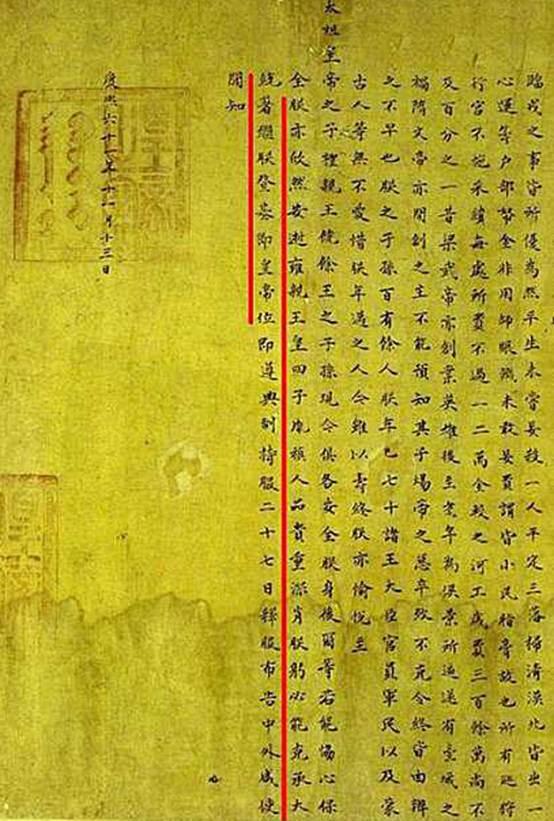 臨戎之事皆所優為然平生未嘗妄殺一人平定三藩掃清漠北皆出一
心運籌户部帑金非用師賑饑未敢妄費謂皆小民脂膏故也所有巡狩
行宮不施采繢每處所費不過一二萬金較之河工歲費三百餘萬尚不
及百分之一昔梁武帝亦創業英雄後至耄年為侯景所逼遂有臺城之
禍隋文帝亦開創之主不能預知其子煬帝之惡卒致不克令終皆由辨
之不早也朕之子孫百有餘人朕年已七十諸王大臣官員軍民以及蒙
古人等無不愛惜朕年邁之人今雖以壽終朕亦愉悅至
太祖皇帝之子禮親王饒餘王之子孫現今俱各安全朕身後爾等若能協心保
全朕亦欣然安逝雍親王皇四子胤禛人品貴重深肖朕躬必能克承大
統著繼朕登基即皇帝位即遵典制持服二十七日釋服布告中外咸使
聞知
康熙六十一年十一月十三日